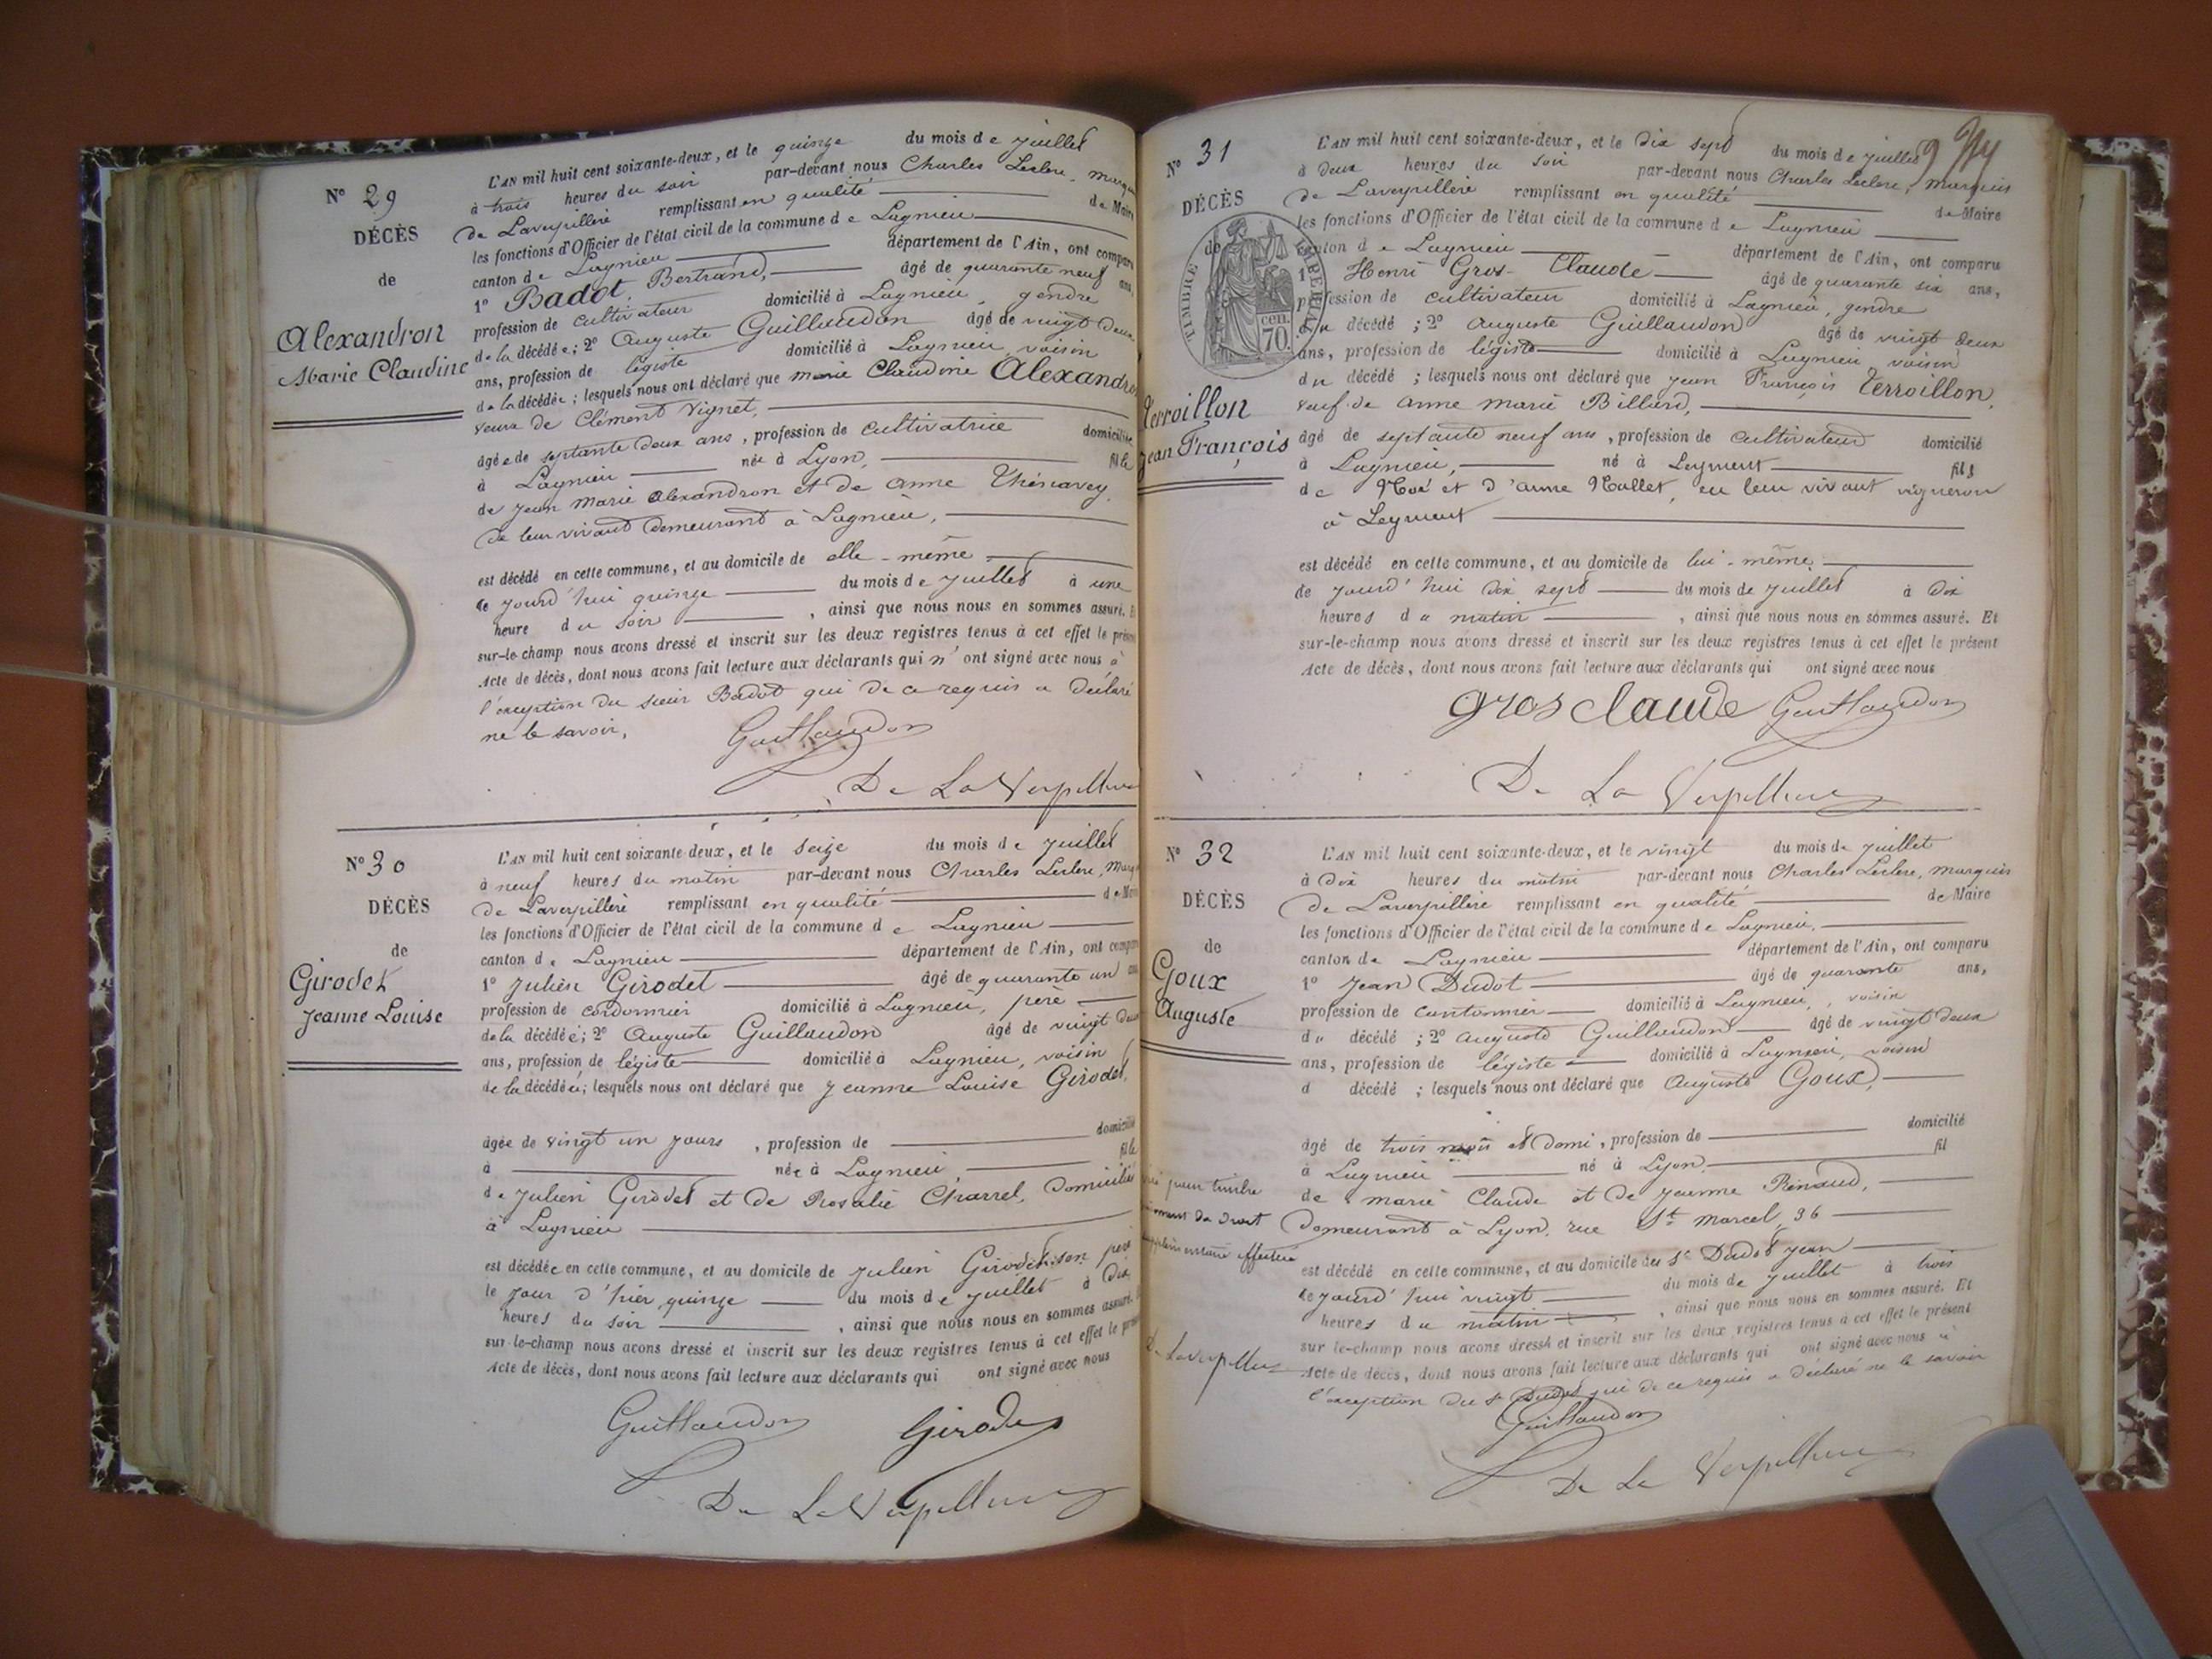 N° 29
DÉCÈS
de
Alexandron
Marie Claudine
L'AN mil huit cent soixante-deux, et le quinze du mois de juillet
à trois heures du soir par-devant nous Charles Leclerc, marquis
de Laverpillière remplissant en qualité de Maire
les fonctions d'Officier de l'état civil de la commune de Lagnieu
canton de Lagnieu département de l'Ain, ont comparu
1° Badot, Bertrand, âgé de quarante neuf ans,
profession de cultivateur domicilié à Lagnieu, gendre
de la décédée; 2° Auguste Guillaudon âgé de vingt deux
ans, profession de légiste domicilié à Lagnieu, voisin
de la décédée; lesquels nous ont déclaré que marie Claudine Alexandron
veuve de Clément Vignet,
âgée de septante deux ans, profession de cultivatrice domiciliée
à Lagnieu née à Lyon, fille
de jean Marie Alexandron et de anne
de leur vivant demeurant à Lagnieu,
est décédé en cette commune, et au domicile de elle-même
ce jourd'hui quinze du mois de juillet à une
heure du soir, ainsi que nous nous en sommes assuré. Et
sur-le-champ nous avons dressé et inscrit sur les deux registres tenus à cet effet le présent
Acte de décès, dont nous avons fait lecture aux déclarants qui n'ont signé avec nous à
l'exception du sieur Badot qui de ce requis a déclaré
ne le savoir,
Guillaudon
De La Verpilliere
N° 30
DÉCÈS
de
Girodet
Jeanne Louise
L'AN mil huit cent soixante-deux, et le seize du mois de juillet
à neuf heures du matin par-devant nous Charles Leclerc, marquis
de Laverpillière remplissant en qualité de Maire
les fonctions d'Officier de l'état civil de la commune de Lagnieu
canton de Lagnieu département de l'Ain, ont comparu
1° Julien Girodet âgé de quarante un ans
profession de cordonnier domicilié à Lagnieu, père
de la décédée; 2° Auguste Guillaudon âgé de vingt deux
ans, profession de légiste domicilié à Lagnieu, voisin
de la décédée; lesquels nous ont déclaré que Jeanne Louise Girodet,
âgée de vingt un jours, profession de domicilié
à née à Lagnieu, fille
de Julien Girodet et de Rosalie Charrel, domiciliés
à Lagnieu
est décédée en cette commune, et au domicile de Julien Girodet son père
le jour d'hier, quinze du mois de juillet à dix
heures du soir, ainsi que nous nous en sommes assuré. Et
sur-le-champ nous avons dressé et inscrit sur les deux registres tenus à cet effet le présent
Acte de décès, dont nous avons fait lecture aux déclarants qui ont signé avec nous
Guillaudon Girodet
De La Verpilliere
N° 31
DÉCÈS
de
TIMBRE IMPERIAL
70 cen.
Terroillon
Jean François
L'AN mil huit cent soixante-deux, et le dix sept du mois de juillet
à deux heures du soir par-devant nous Charles Leclerc, marquis
de Laverpillière remplissant en qualité de Maire
les fonctions d'Officier de l'état civil de la commune de Lagnieu
canton de Lagnieu département de l'Ain, ont comparu
1° Henri Gros-Claude âgé de quarante six ans,
profession de cultivateur domicilié à Lagnieu, gendre
du décédé; 2° Auguste Guillaudon âgé de vingt deux
ans, profession de légiste domicilié à Lagnieu voisin
du décédé; lesquels nous ont déclaré que jean François Terroillon,
veuf de Anne Marie Billard,
âgé de septante neuf ans, profession de cultivateur domicilié
à Lagnieu, né à Leyment fils
de Noé et d'anne Mallet, en leur vivant vigneron
à Leyment
est décédé en cette commune, et au domicile de lui-même,
ce jourd'hui dix sept du mois de juillet à dix
heures du matin, ainsi que nous nous en sommes assuré. Et
sur-le-champ nous avons dressé et inscrit sur les deux registres tenus à cet effet le présent
Acte de décès, dont nous avons fait lecture aux déclarants qui ont signé avec nous
Grosclaude Guillaudon
De La Verpilliere
N° 32
DÉCÈS
de
Goux
Auguste
L'AN mil huit cent soixante-deux, et le vingt du mois de juillet
à dix heures du matin par-devant nous Charles Leclerc, marquis
de Laverpillière remplissant en qualité de Maire
les fonctions d'Officier de l'état civil de la commune de Lagnieu,
canton de Lagnieu département de l'Ain, ont comparu
1° Jean Dudot âgé de quarante ans,
profession de cantonnier domicilié à Lagnieu, voisin
du décédé; 2° Auguste Guillaudon âgé de vingt deux
ans, profession de légiste domicilié à Lagnieu, voisin
d décédé; lesquels nous ont déclaré que Auguste Goux,
âgé de trois mois et demi, profession de domicilié
à Lagnieu né à Lyon fil
de marie Claude et de Jeanne Renaud,
demeurant à Lyon, rue St Marcel, 36
est décédé en cette commune, et au domicile du Sr Dudot jean
ce jourd'hui vingt du mois de juillet à trois
heures du matin, ainsi que nous nous en sommes assuré. Et
sur-le-champ nous avons dressé et inscrit sur les deux registres tenus à cet effet le présent
Acte de décès, dont nous avons fait lecture aux déclarants qui ont signé avec nous à
l'exception du Sr Dudot qui de ce requis a déclaré ne le savoir
Guillaudon
De La Verpilliere
pour timbre
de droit
supplémentaire effectué
De Laverpilliere